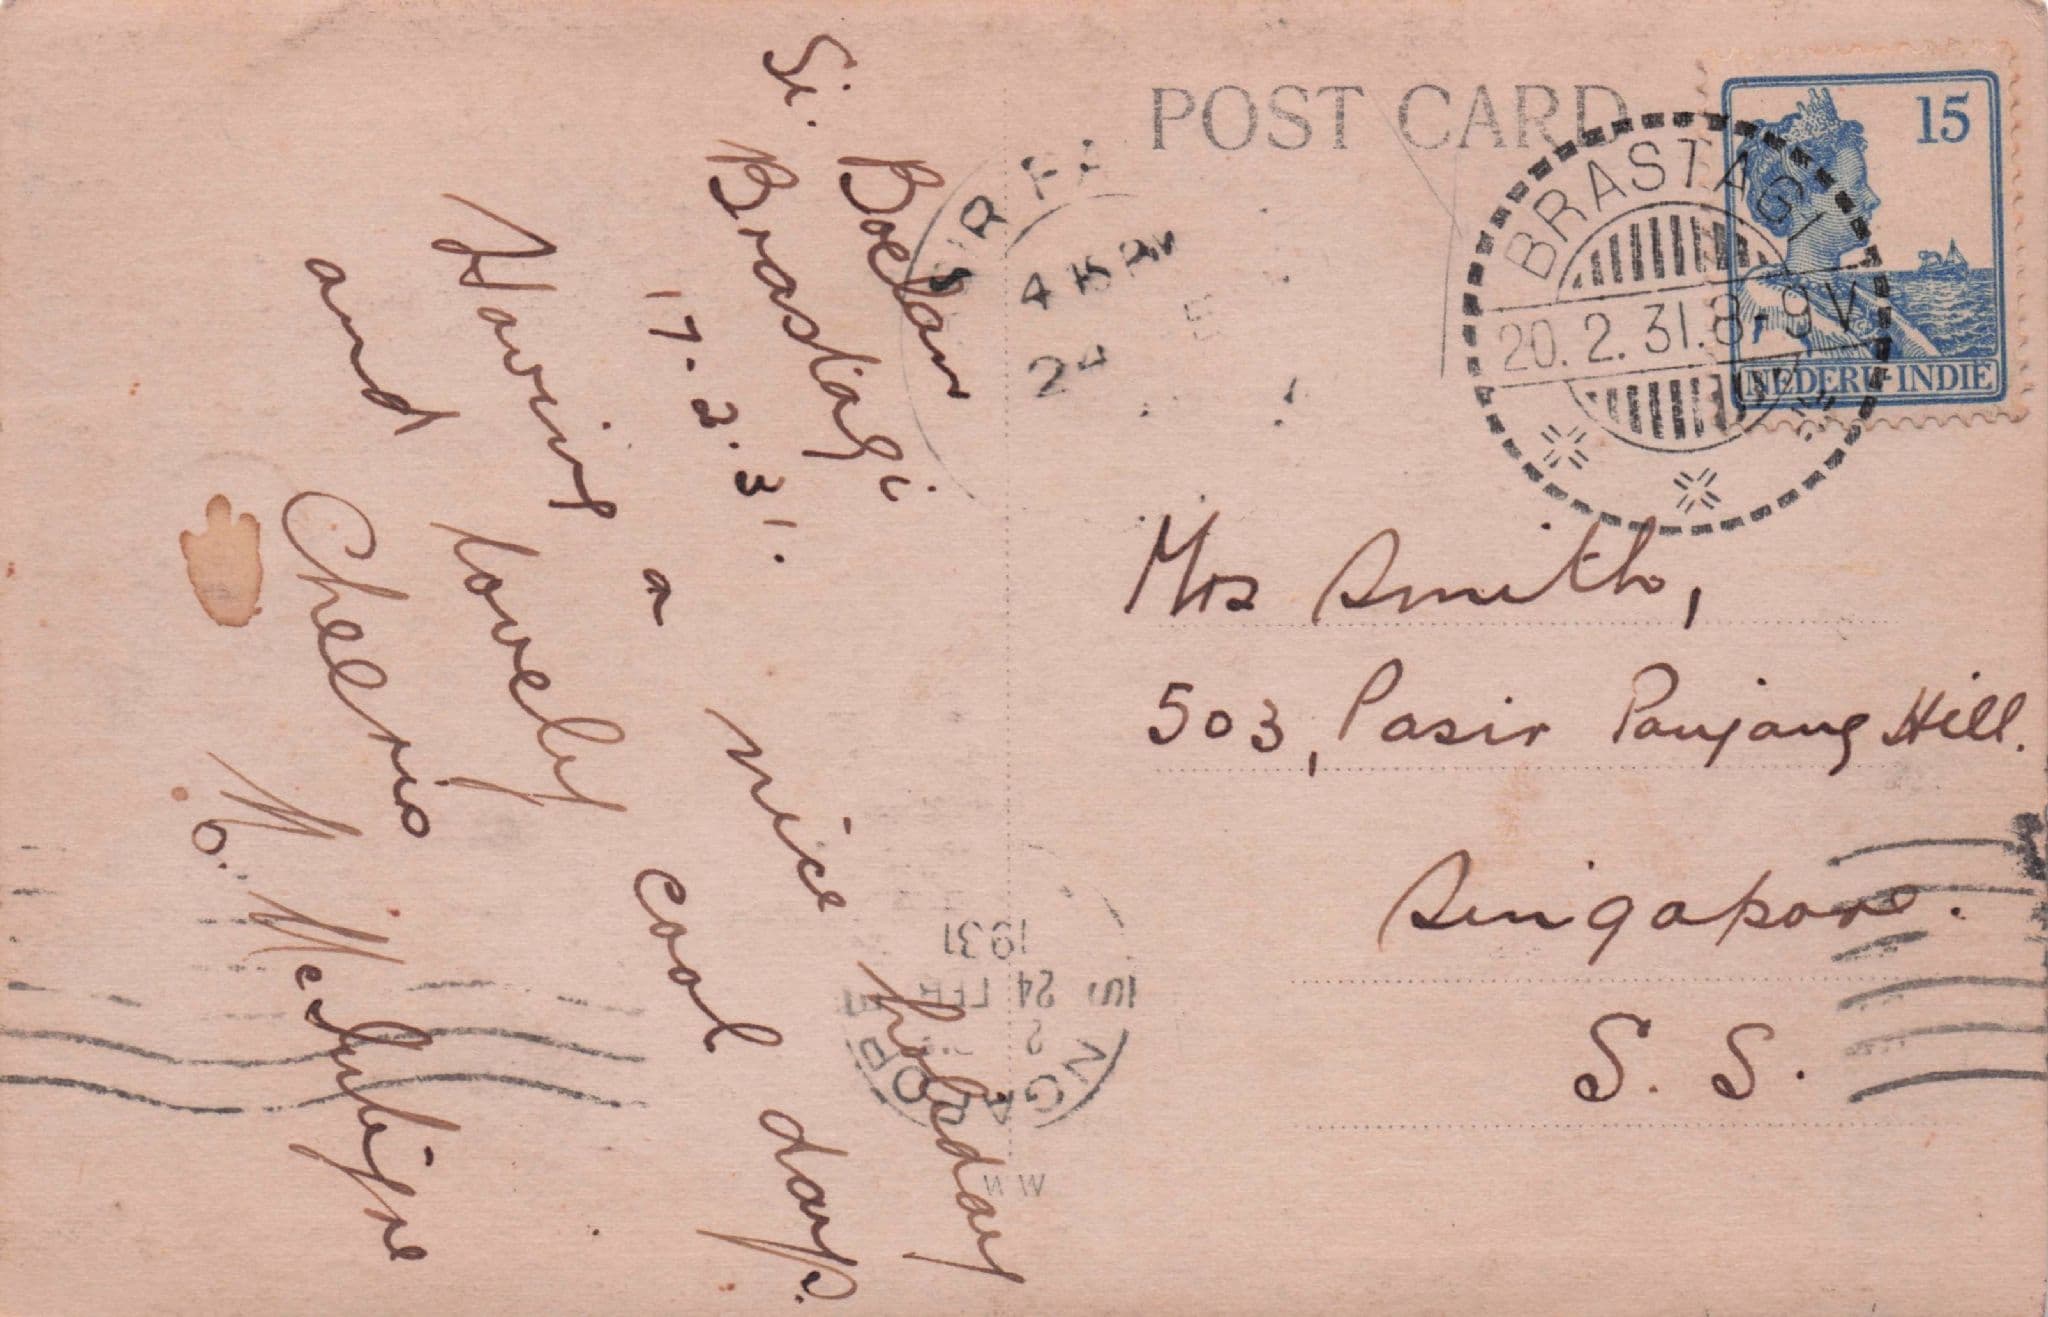 Si. Boelan
Brastagi
17.2.31.
Having a nice holiday
and lovely cool days.
Cheerio
McIntyre
POST CARD
15
NEDERL. INDIE
BRASTAGI
20.2.31.8-9V
4 15 PM
24
Mrs Smith,
503, Pasir Panjang Hill.
Singapore.
S. S.
24 FEB
1931